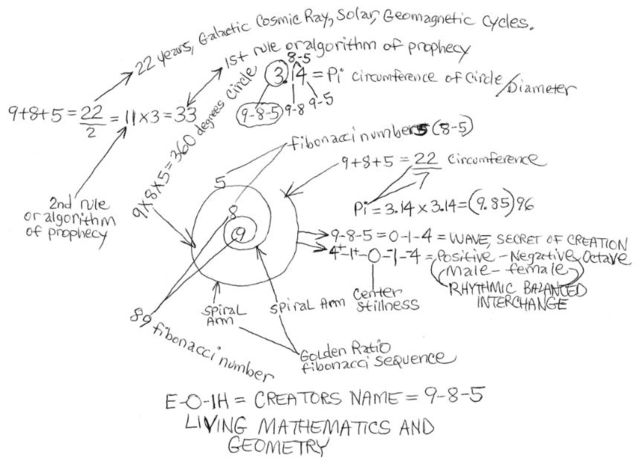 22 years, Galactic Cosmic Ray, Solar, Geomagnetic Cycles.
1st rule or algorithm of prophecy
8-5
3.14 = Pi circumference of circle/Diameter
9-8-5 9-8 9-5
9+8+5 = 22/2 = 11x3 = 33
9x8x5 = 360 degrees circle
fibonacci numbers (8-5)
2nd rule
or algorithm
of prophecy
9+8+5 = 22 circumference
7
Pi = 3.14 x 3.14 = (9.85)96
5
8
9
9-8-5 = 0-1-4 = WAVE, SECRET OF CREATION
4+1+-0-1-4 = Positive - Negative, Octave
(Male - female)
RHYTHMIC BALANCED
INTERCHANGE
center
stillness
spiral
Arm
spiral Arm
89 fibonacci number
Golden Ratio
fibonacci sequence
E-O-IH = CREATORS NAME = 9-8-5
LIVING MATHEMATICS AND
GEOMETRY